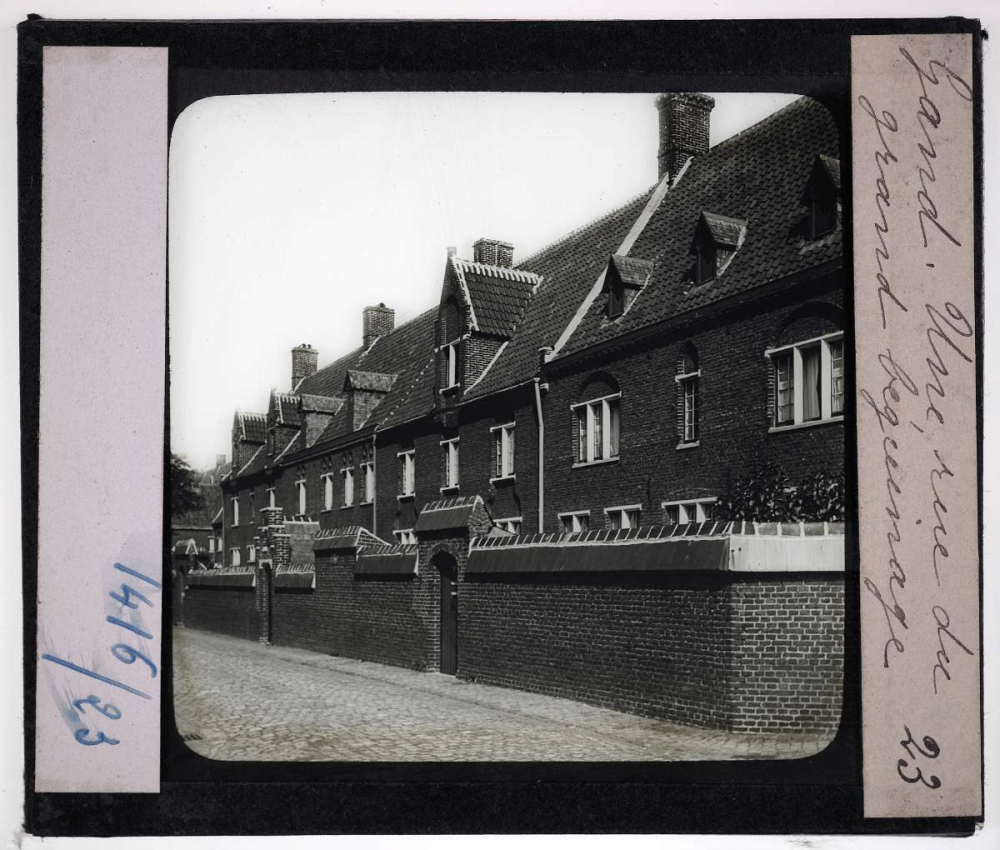 1416/23
Gand. Une rue du
grand béguinage
23